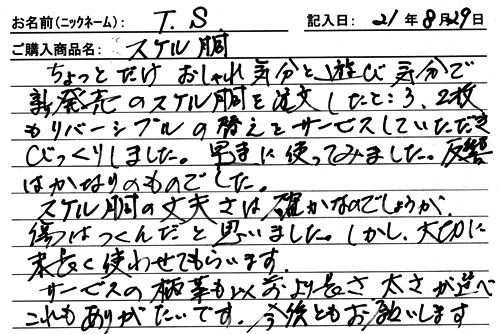 お名前(ニックネーム): T.S. 記入日: 21年8月29日
ご購入商品名: スケル胴
ちょっとだけ おしゃれ気分と遊び気分で
新発売のスケル胴を注文したところ、2枚
もリバーシブルの替えとサービスしていただき
びっくりしました。早速に使ってみました。反響
はかなりのものでした。
スケル胴の丈夫さは確かなのでしょうが、
傷はつくんだと思いました。しかし、大切に
末長く使わせてもらいます。
サービスの柄革も以前より長さ 太さが選べ
これもありがたいです。今後ともお願いします